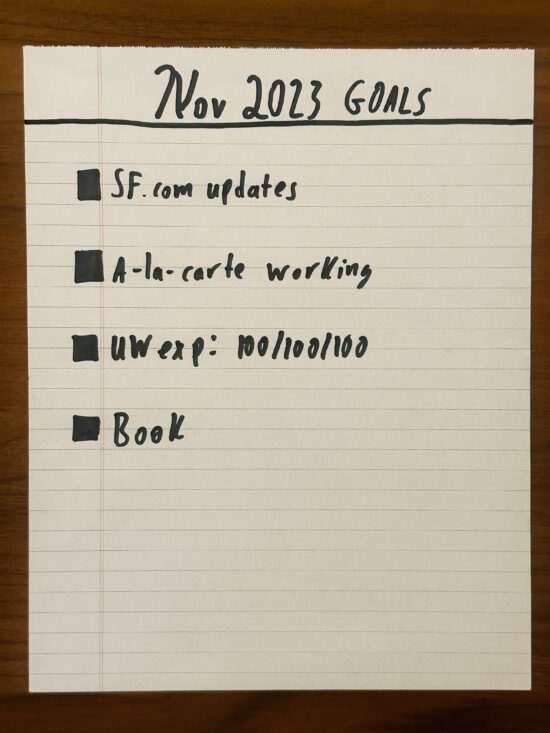 Nov 2023 GOALS
SF.com updates
A-la-carte working
UW exp: 100/100/100
Book